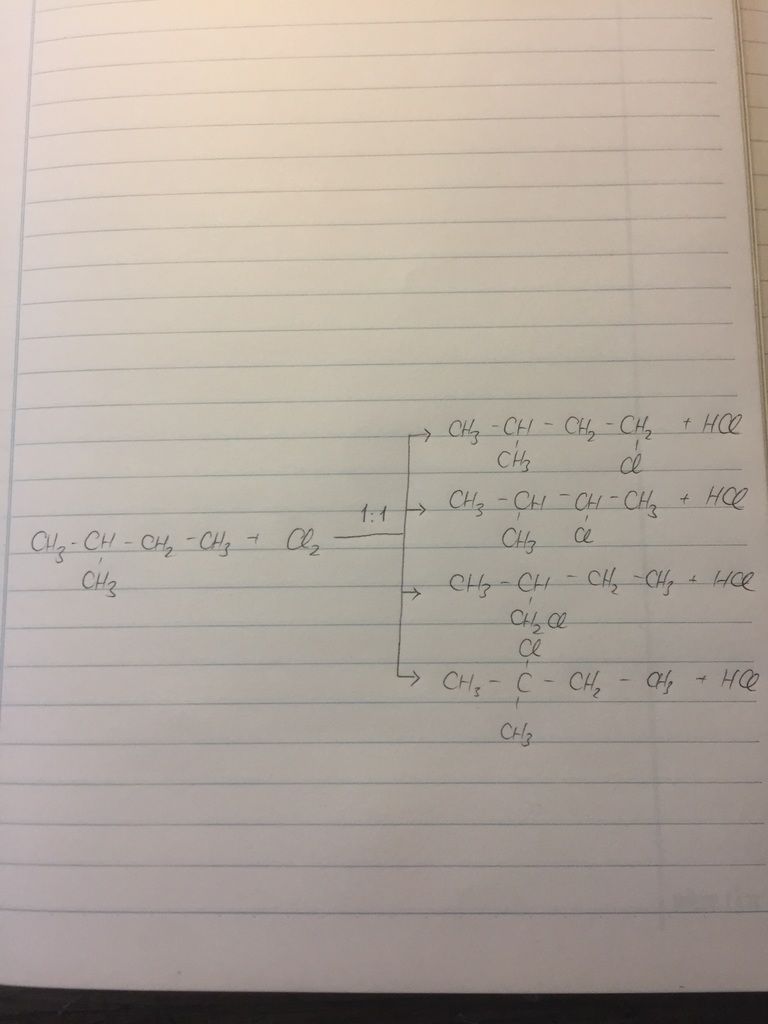 CH₃ - CH - CH₂ - CH₂ + HCl
CH₃ Cl
CH₃ - CH - CH - CH₃ + HCl
1:1
CH₃ Cl
CH₃ - CH - CH₂ - CH₃ + Cl₂
CH₃
CH₃ - CH - CH₂ - CH₃ + HCl
CH₂Cl
Cl
CH₃ - C - CH₂ - CH₃ + HCl
CH₃